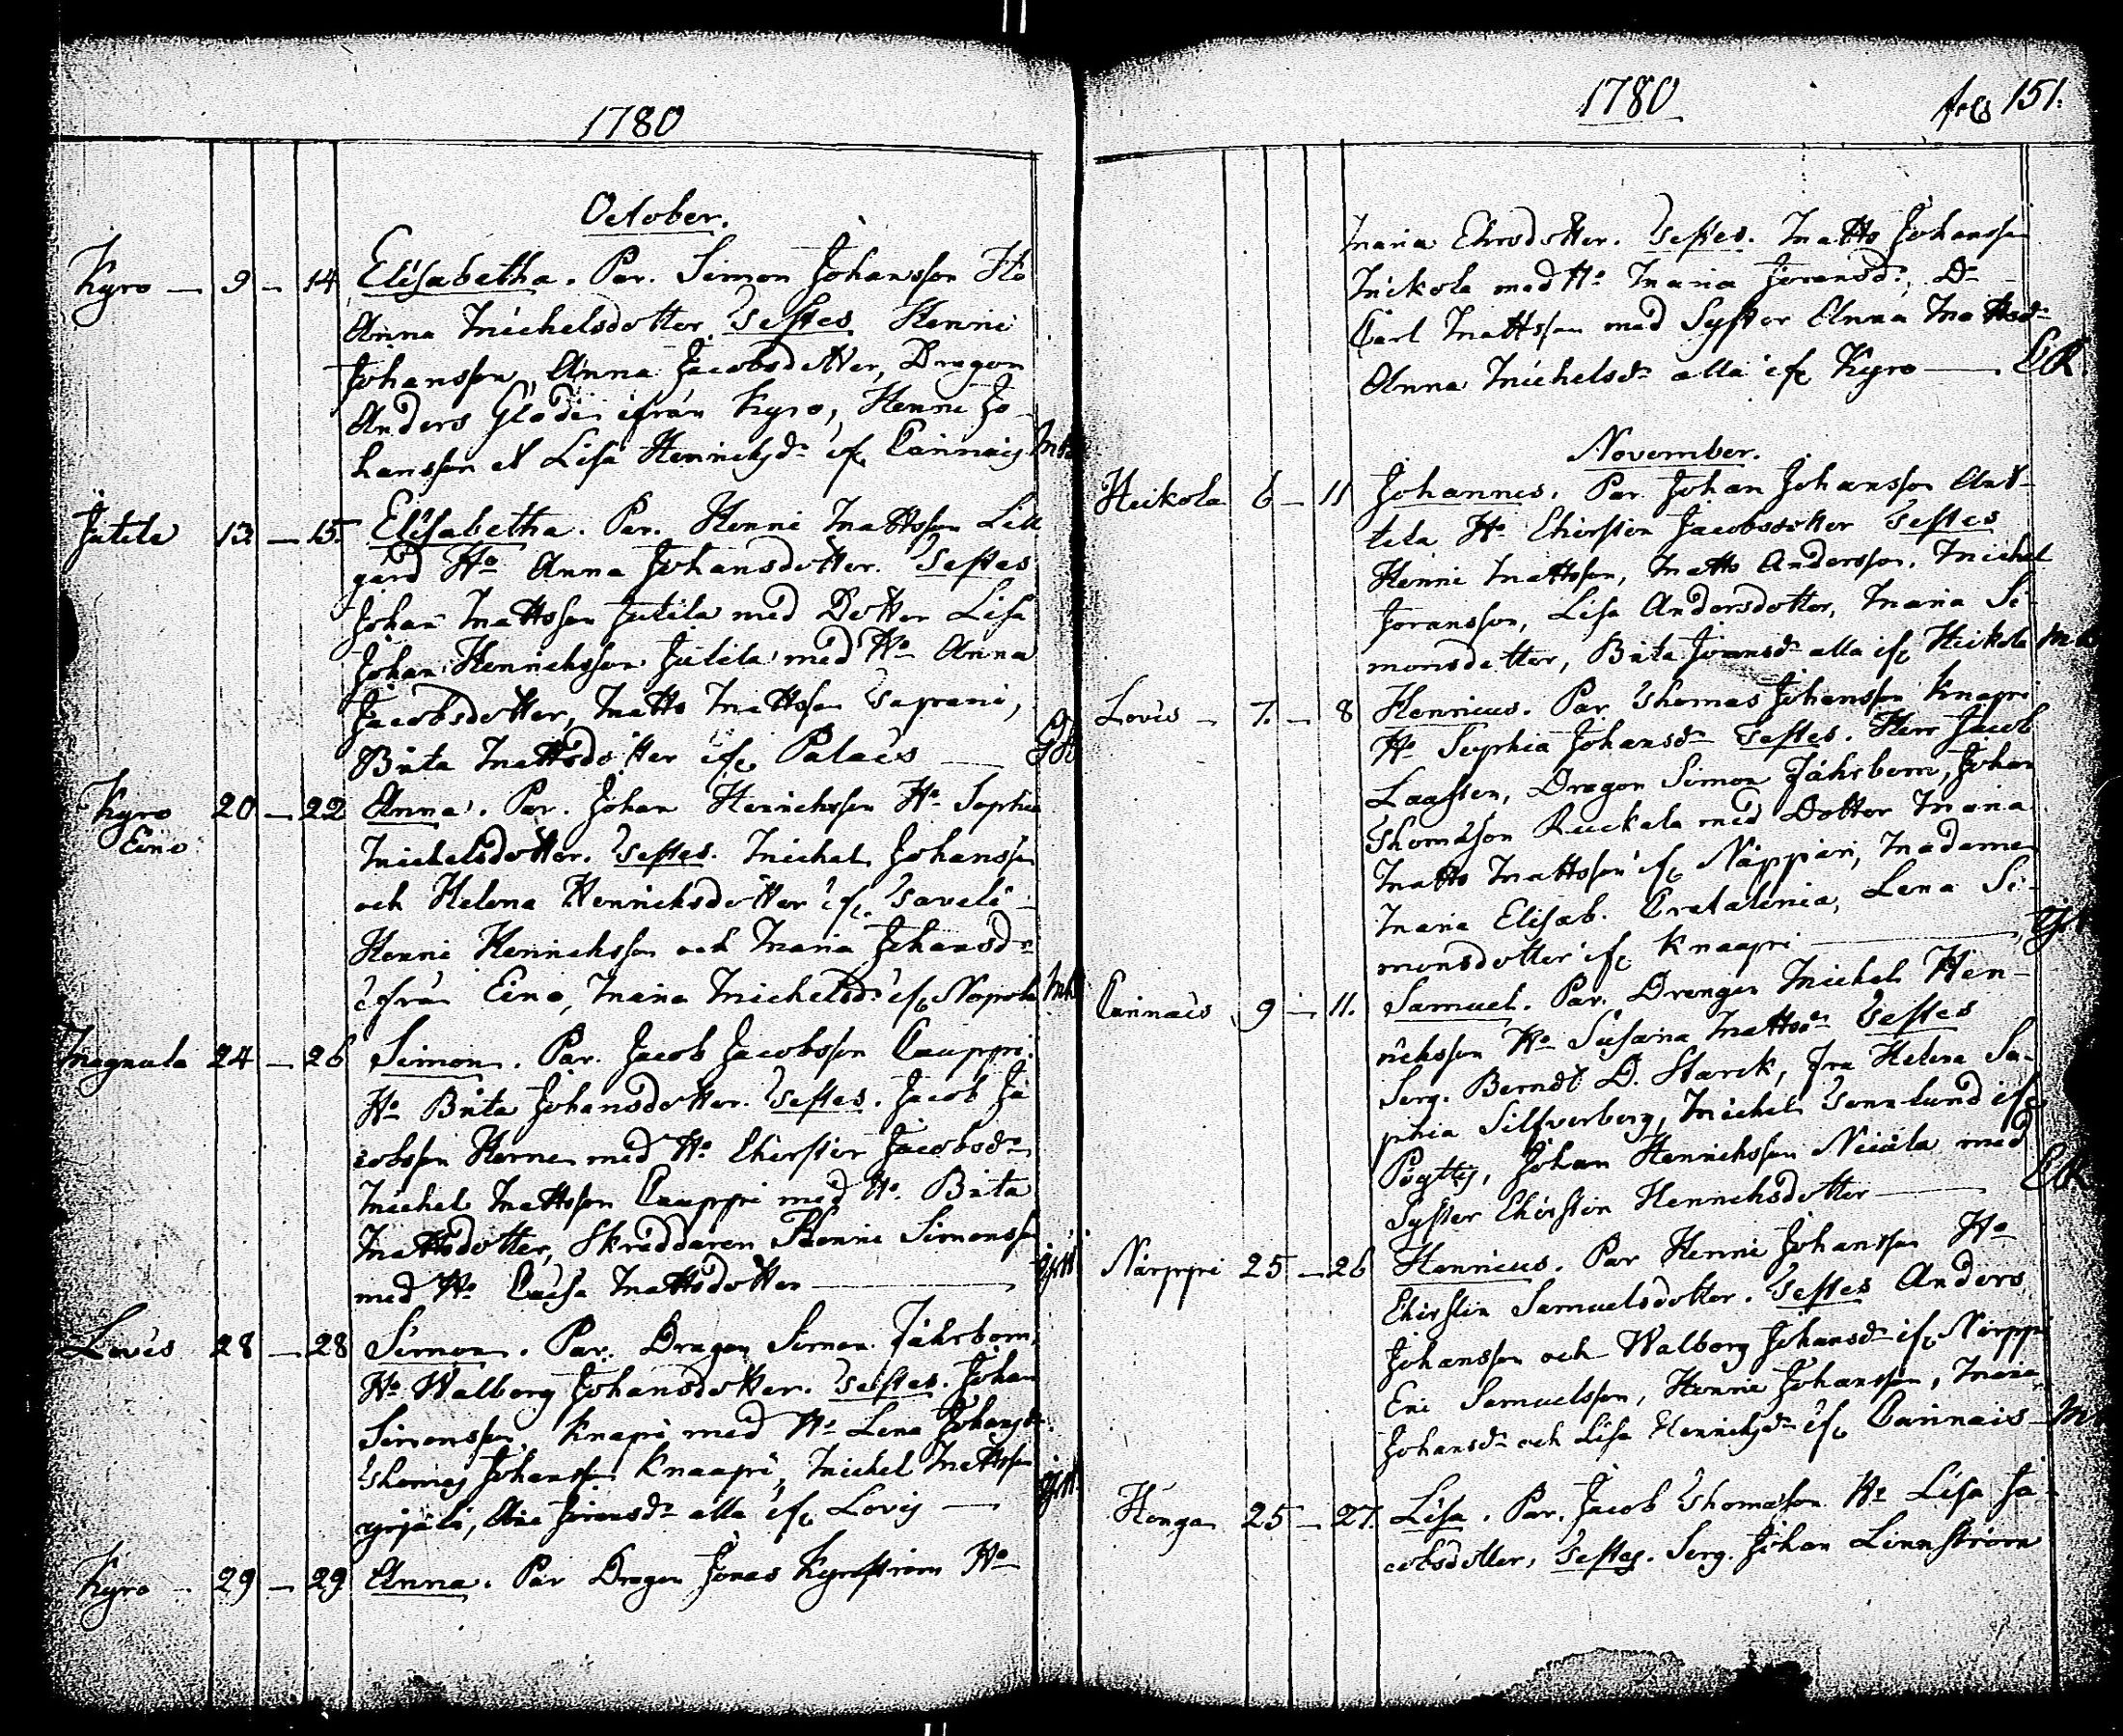 1780
October.
Kyro — 9 — 14 Elisabetha. Par. Simon Johansson Ho
Anna Michelsdotter Testes Henric
Johansson, Anna Jacobsdotter, Dragon
Anders Glader ifrån Kyro, Henric Jo-
hansson et Lisa Henrichsdr if. Cainnais
Jutila 13 — 15. Elisabetha. Par. Henric Mattsson Lill
gård Ho Anna Johansdotter. Testes
Johan Mattsson Jutila med Dotter Lisa
Johan Henrichsson Jutila med Ho Anna
Jacobsdotter, Matts Mattsson Saprani,
Brita Mattsdotter if. Palais —
Kyro 20 — 22 Anna. Par. Johan Henrichsson Ho Sophia
Eino Michelsdotter. Testes. Michel Johansson
och Helena Henrichsdotter if. Saveli
Henric Henrichsson och Maria Johansdr
ifrån Eino, Maria Michelsdr if.
Magnula 24 — 26 Simon. Par. Jacob Jacobsson Cauppi.
Ho Brita Johansdotter. Testes. Jacob Ja
cobsson Horne med Ho Chirstin Jacobsdr
Michel Mattsson Cauppi med Ho Brita
Mattsdotter, Skräddaren Henric Simonsson
med Ho Caisa Mattsdotter —
Lovis 28 — 28 Simon. Par. Dragon Simon Fåhrbom,
Ho Walborg Johansdotter. Testes. Johan
Simonsson Knapri med Ho Lena Johansdr
Thomas Johansson Knaapri, Michel Mattsson
Yrjäli, Ana Joransdr alla if. Lovis —
Kyro — 29 — 29 Anna. Par Dragon Jonas Kyroström Ho
1780
folio 151.
Maria Ehrsdotter. Testes. Matts Johansson
Mickola med Ho Maria Joransdr, Dr
Carl Mattsson med Syster Anna Mattsdr
Anna Michelsdr alla if. Kyro — EK.
November.
Heikola 6 — 11 Johannes. Par Johan Johansson Ant-
tila Ho Chirstin Jacobsdotter Testes
Henric Mattsson, Matts Andersson, Michel
Joransson, Lisa Andersdotter, Maria Si-
monsdotter, Brita Joransdr alla if. Heikola
Lovis — 7. — 8 Henricus. Par Thomas Johansson Knapri
Ho Sophia Johansdr Testes. Herr Jacob
Laasson, Dragon Simon Fåhrbom, Johan
Thomasson Ruckala med Dotter Maria
Matts Mattsson if. Näppäri, Madame
Maria Elisab. Cratalenia, Lena Si-
monsdotter if. Knaapri —
Cainnais 9 — 11. Samuel. Par. Drengen Michel Hen-
richsson Ho Susana Mattsdr Testes
Serg. Berndt D. Starck, fru Helena So-
phia Silfverberg, Michel Tennlund if.
Pöyttis, Johan Henrichsson Neiula med
Syster Chirstin Henrichsdotter — EK
Närppi 25 — 26 Henricus. Par Henric Johansson Ho
Chirstin Samuelsdotter. Testes Anders
Johansson och Walborg Johansdr if. Närppi
Eric Samuelsson, Henric Johansson, Maria
Johansdr och Lisa Henrichsdr if. Cainnais —
Honga 25 — 27. Lisa. Par. Jacob Thomasson Ho Lisa Ja-
cobsdotter, Testes. Serg. Johan Linnström